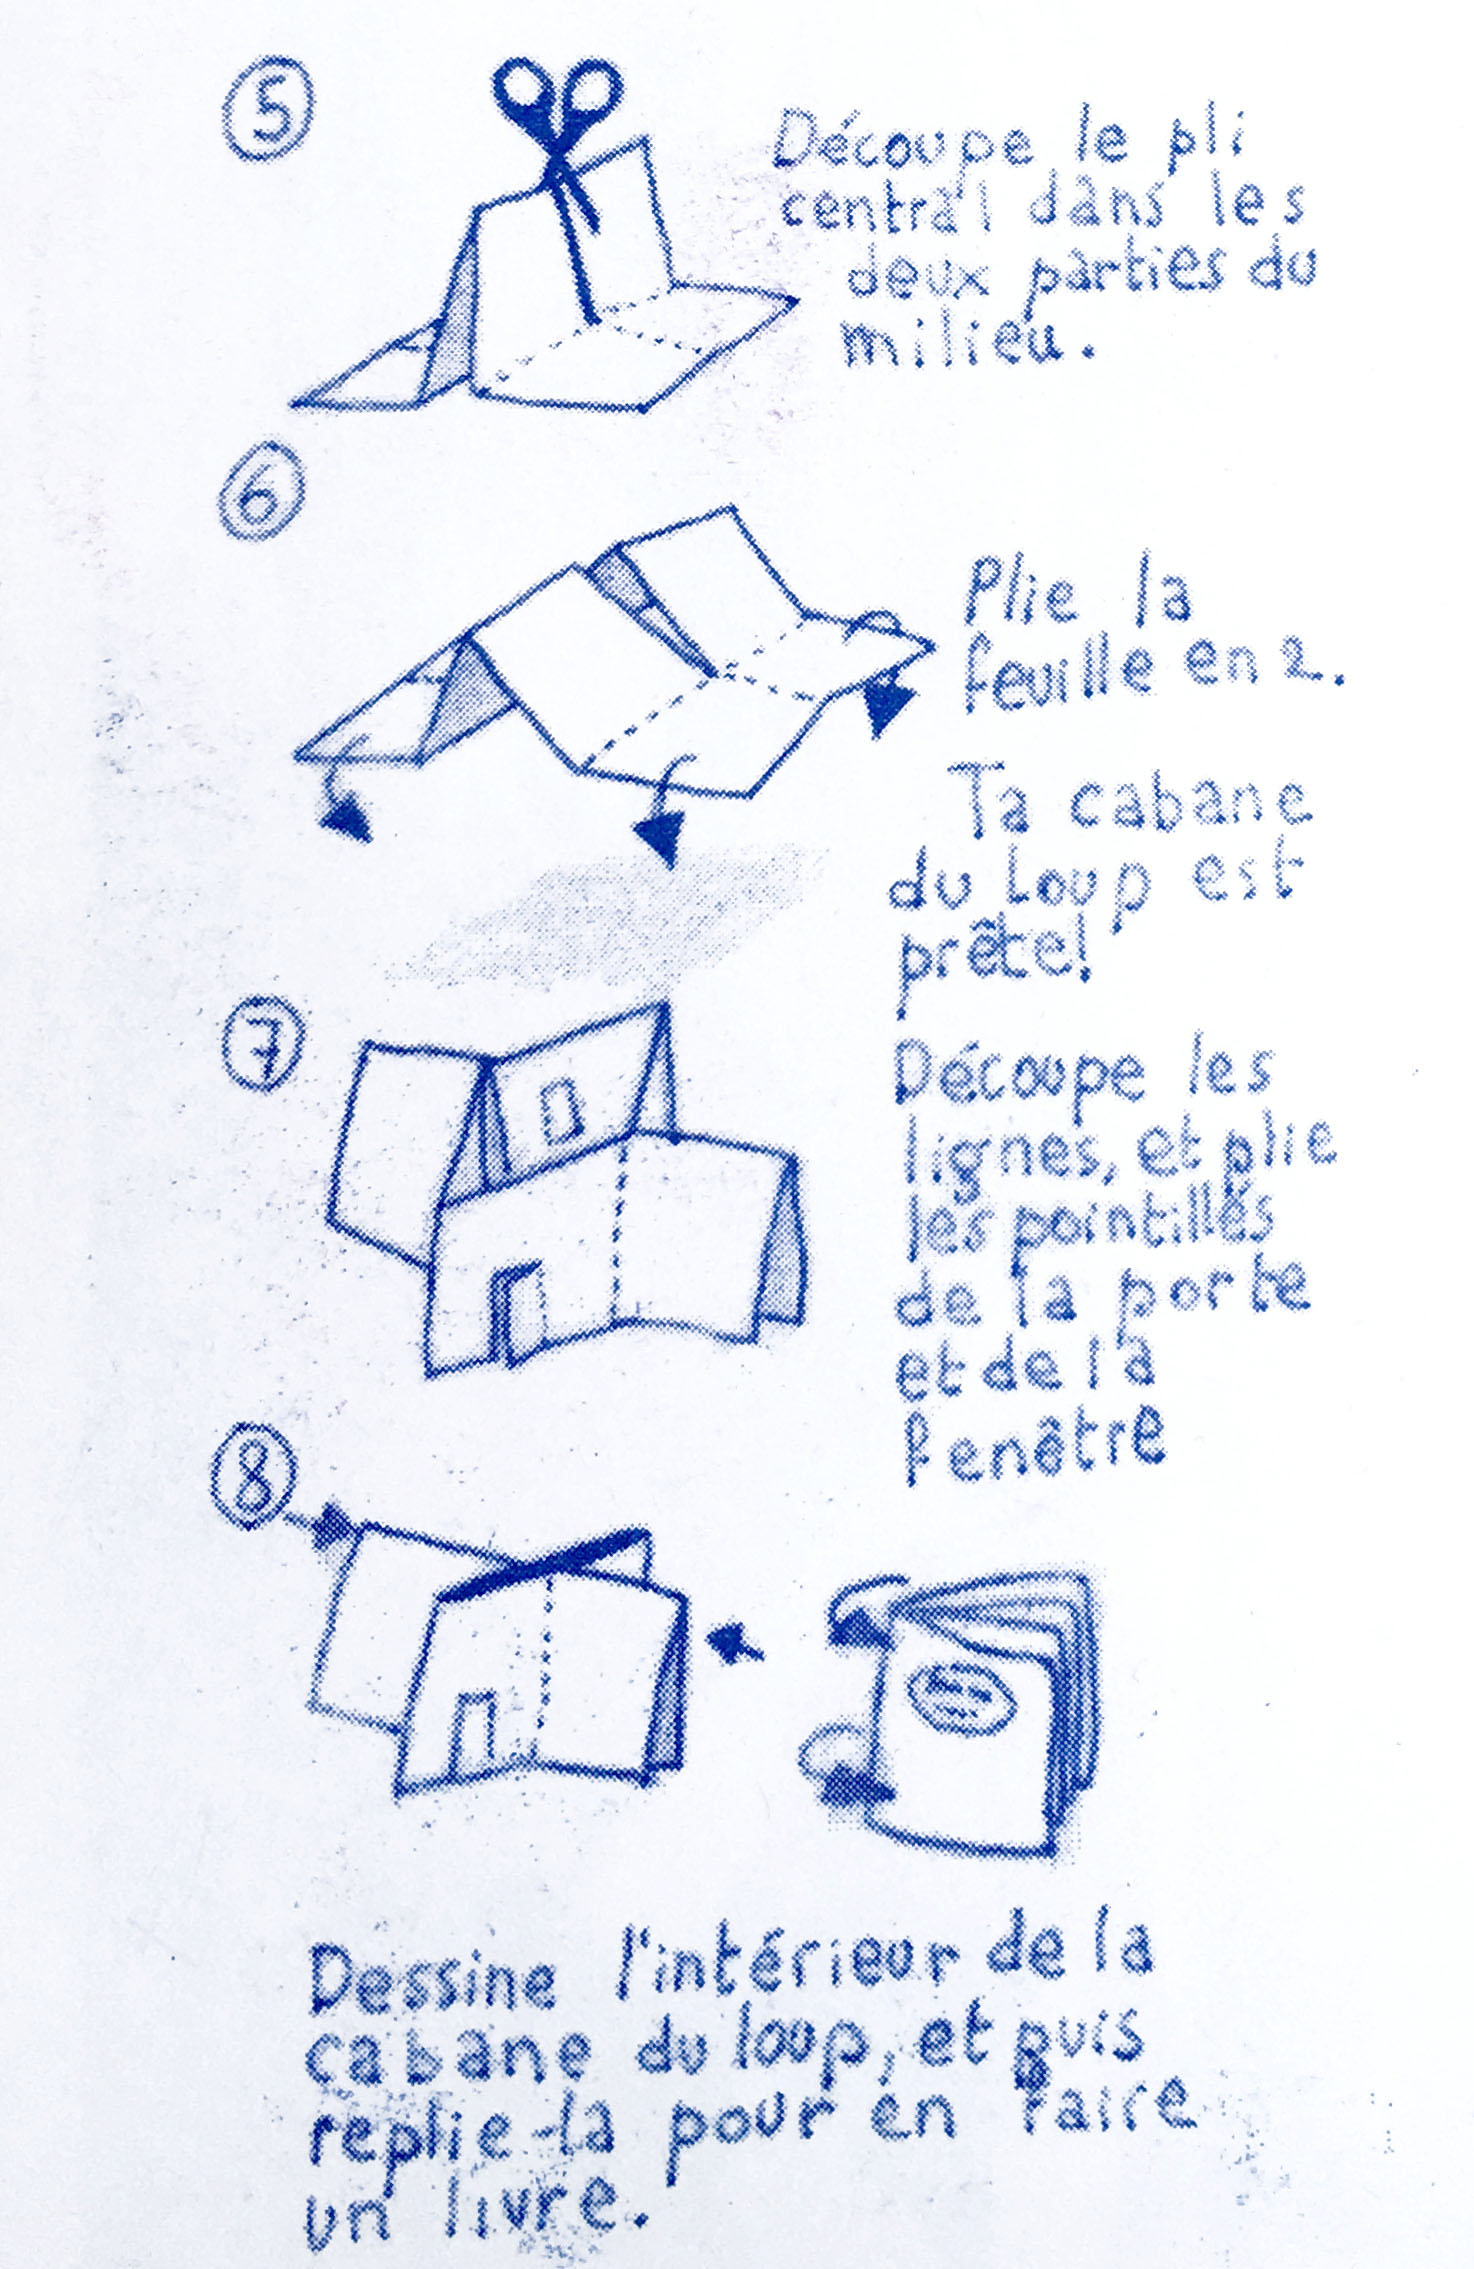 5
Découpe le pli
central dans les
deux parties du
milieu.
6
Plie la
feuille en 2.
Ta cabane
du Loup est
prête!
7
Découpe les
lignes, et plie
les pointillés
de la porte
et de la
fenêtre
8
Dessine l'intérieur de la
cabane du loup, et puis
replie-la pour en faire
un livre.